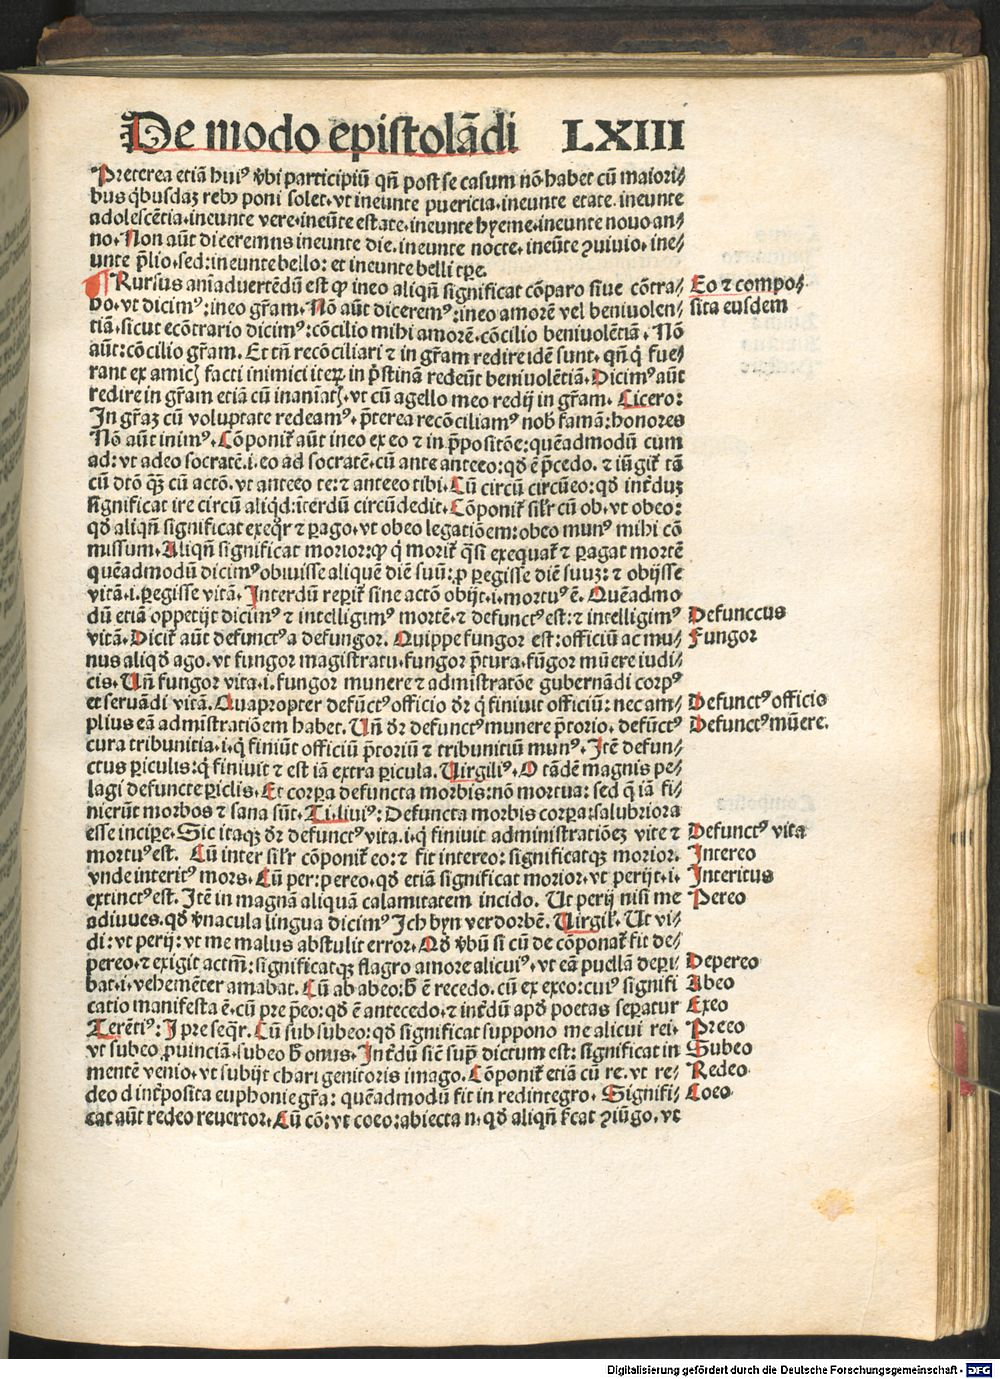 De modo epistolādi LXIII
Preterea etiā huiꝰ v̄bi participiū qn̄ post se casum nō habet cū maiori⸗
bus q̇busdaꝫ rebꝫ poni solet. vt ineunte puericia. ineunte etate. ineunte
adolescētia. ineunte vere. ineūte estate. ineunte hyeme. ineunte nouo an⸗
no. Non aūt diceremus ineunte die. ineunte nocte. ineūte ꝯuiuio. ine⸗
unte p̄lio. sed: ineunte bello: et ineunte belli tꝑe.
¶ Rursus aniaduertēdū est ꝙ ineo aliqn̄ significat cōparo siue cōtra⸗
bo. vt dicimꝰ: ineo gr̄am. Nō aūt diceremꝰ: ineo amorē vel beniuolen⸗
tiā. sicut ecōtrario dicimꝰ: cōcilio mihi amorē. cōcilio beniuolētiā. Nō
aūt: cōcilio gr̄am. Et tn̄ recōciliari ⁊ in gr̄am redire idē sunt. qn̄ q̇ fue⸗
rant ex amicꝭ facti inimici iteꝝ in p̄stinā redeūt beniuolētiā. Dicimꝰ aūt
redire in gr̄am etiā cū inaniātꝭ. vt cū agello meo redij in gr̄am. Cicero:
In gr̄aꝫ cū voluptate redeamꝰ. p̄terea recōciliamꝰ nob̄ famā: honores
Nō aūt inimꝰ. Cōponit᷑ aūt ineo ex eo ⁊ in p̄positōe: quēadmodū cum
ad: vt adeo socratē. i. eo ad socratē. cū ante anteeo: qd̄ ē p̄cedo. ⁊ iūgit᷑ tā
cū dtō qꝫ cū actō. vt anteeo te: ⁊ anteeo tibi. Cū circū circūeo: qd̄ int̄duꝫ
significat ire circū aliqd: īterdū circūdedit. Cōponit᷑ sil̄r cū ob. vt obeo:
qd̄ aliqn̄ significat exeq̇r ⁊ ꝑago. vt obeo legatiōem: obeo munꝰ mihi cō
missum. Aliqn̄ significat morior: ꝙ q̇ morit᷑ q̄si exequat᷑ ⁊ ꝑagat mortē
quēadmodū dicimꝰ obiuisse aliquē diē suū: ꝓ ꝑegisse diē suuꝫ: ⁊ obijsse
vitā. i. ꝑegisse vitā. Interdū reperit᷑ sine actō obijt. i. mortuꝰ ē. Quēadmo
dū etiā oppetijt dicimꝰ ⁊ intelligimꝰ mortē: ⁊ defunctꝰ est: ⁊ intelligimꝰ
vitā. Dicit᷑ aūt defunctꝰ a defungor. Quippe fungor est: officiū ac mu⸗
nus aliqd̄ ago. vt fungor magistratu. fungor p̄tura. fūgor mūere iudi⸗
cis. Un̄ fungor vita. i. fungor munere ⁊ admistratōe gubernādi corpꝰ
et seruādi vitā. Quapropter defūctꝰ officio dr̄ q̇ finiuit officiū: nec am⸗
plius eā admīstratiōem habet. Un̄ dr̄ defunctꝰ munere p̄torio. defūctꝰ
cura tribunitia. i. q̇ finiūt officiū p̄toriū ⁊ tribunitiū munꝰ. Itē defun⸗
ctus ꝑiculis: q̇ finiuit ⁊ est iā extra ꝑicula. Uirgiliꝰ. O tādē magnis pe⸗
lagi defuncte ꝑiclis. Et corꝑa defuncta morbis: nō mortua: sed q̇ iā fi⸗
nierūt morbos ⁊ sana sūt. Ti. liuiꝰ: Defuncta morbis corꝑa: salubriora
esse inciꝑe. Sic itaqꝫ dr̄ defunctꝰ vita. i. q̇ finiuit administratiōeꝫ vite ⁊
mortuꝰ est. Cū inter sil̄r cōponit᷑ eo: ⁊ fit intereo: significatqꝫ morior.
vnde interitꝰ mors. Cū per: pereo. qd̄ etiā significat morior. vt perijt. i.
extinctꝰ est. Itē in magnā aliquā calamitatem incido. Ut perij nisi me
adiuues. qd̄ v̄nacula lingua dicimꝰ Ich byn verdorbē. Uirgil᷑. Ut vi⸗
di: vt perij: vt me malus abstulit error. Qd̄ v̄bū si cū de cōponat᷑ fit de⸗
pereo. ⁊ exigit actm̄: significatqꝫ flagro amore alicuiꝰ. vt eā puellā deꝑi⸗
bat. i. vehemēter amabat. Cū ab abeo: h̄ ē recedo. cū ex exeo: cuiꝰ signifi
catio manifesta ē. cū pre p̄eo: qd̄ ē antecedo. ⁊ int̄dū apd̄ poetas seꝑatur
Terētiꝰ: I pre seq̇r. Cū sub subeo: qd̄ significat suppono me alicui rei.
vt subeo ꝓuinciā. subeo h̄ onus. Int̄dū sic̄ sup̄ dictum est: significat in
mentē venio. vt subijt chari genitoris imago. Cōponit᷑ etiā cū re. vt re⸗
deo d int̄posita euphonie gr̄a: quēadmodū fit in redintegro. Signifi⸗
cat aūt redeo reuertor. Cū cō: vt coeo: abiecta n. qd̄ aliqn̄ s̄cat ꝯiūgo. vt
Eo ⁊ compo⸗
sita eusdem
Defunccus
Fungor
Defunctꝰ officio
Defunctꝰ mūere.
Defunctꝰ vita
Intereo
Interitus
Pereo
Depereo
Abeo
Exeo
Preeo
Subeo
Redeo
Coeo
Digitalisierung gefördert durch die Deutsche Forschungsgemeinschaft - DFG